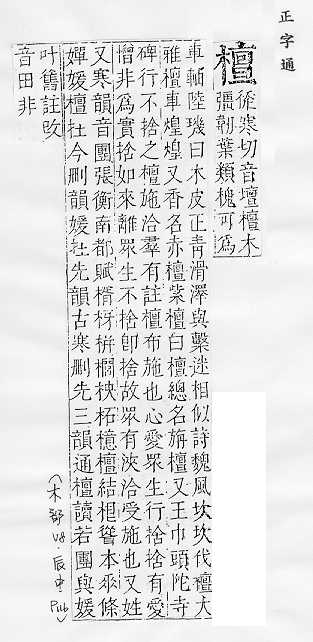 正字通
檀
徒寒切音壇檀木
彊韌葉類槐可爲
車輔陸璣曰木皮正青滑澤與檕迷相似詩魏風坎坎伐檀大
雅檀車煌煌又香名赤檀紫檀白檀總名旃檀又王巾頭陀寺
碑行不捨之檀施洽羣有註檀布施也心愛眾生行捨捨有愛
憎非爲實捨如來離眾生不捨卽捨故眾有浹洽受施也又姓
又寒韻音團張衡南都賦楈枒栟櫚柍柘檍檀結根聳本垂條
嬋媛檀在今刪韻媛在先韻古寒刪先三韻通檀讀若團與媛
叶舊註改
音田非
(木部 V8. 辰中 Pub)